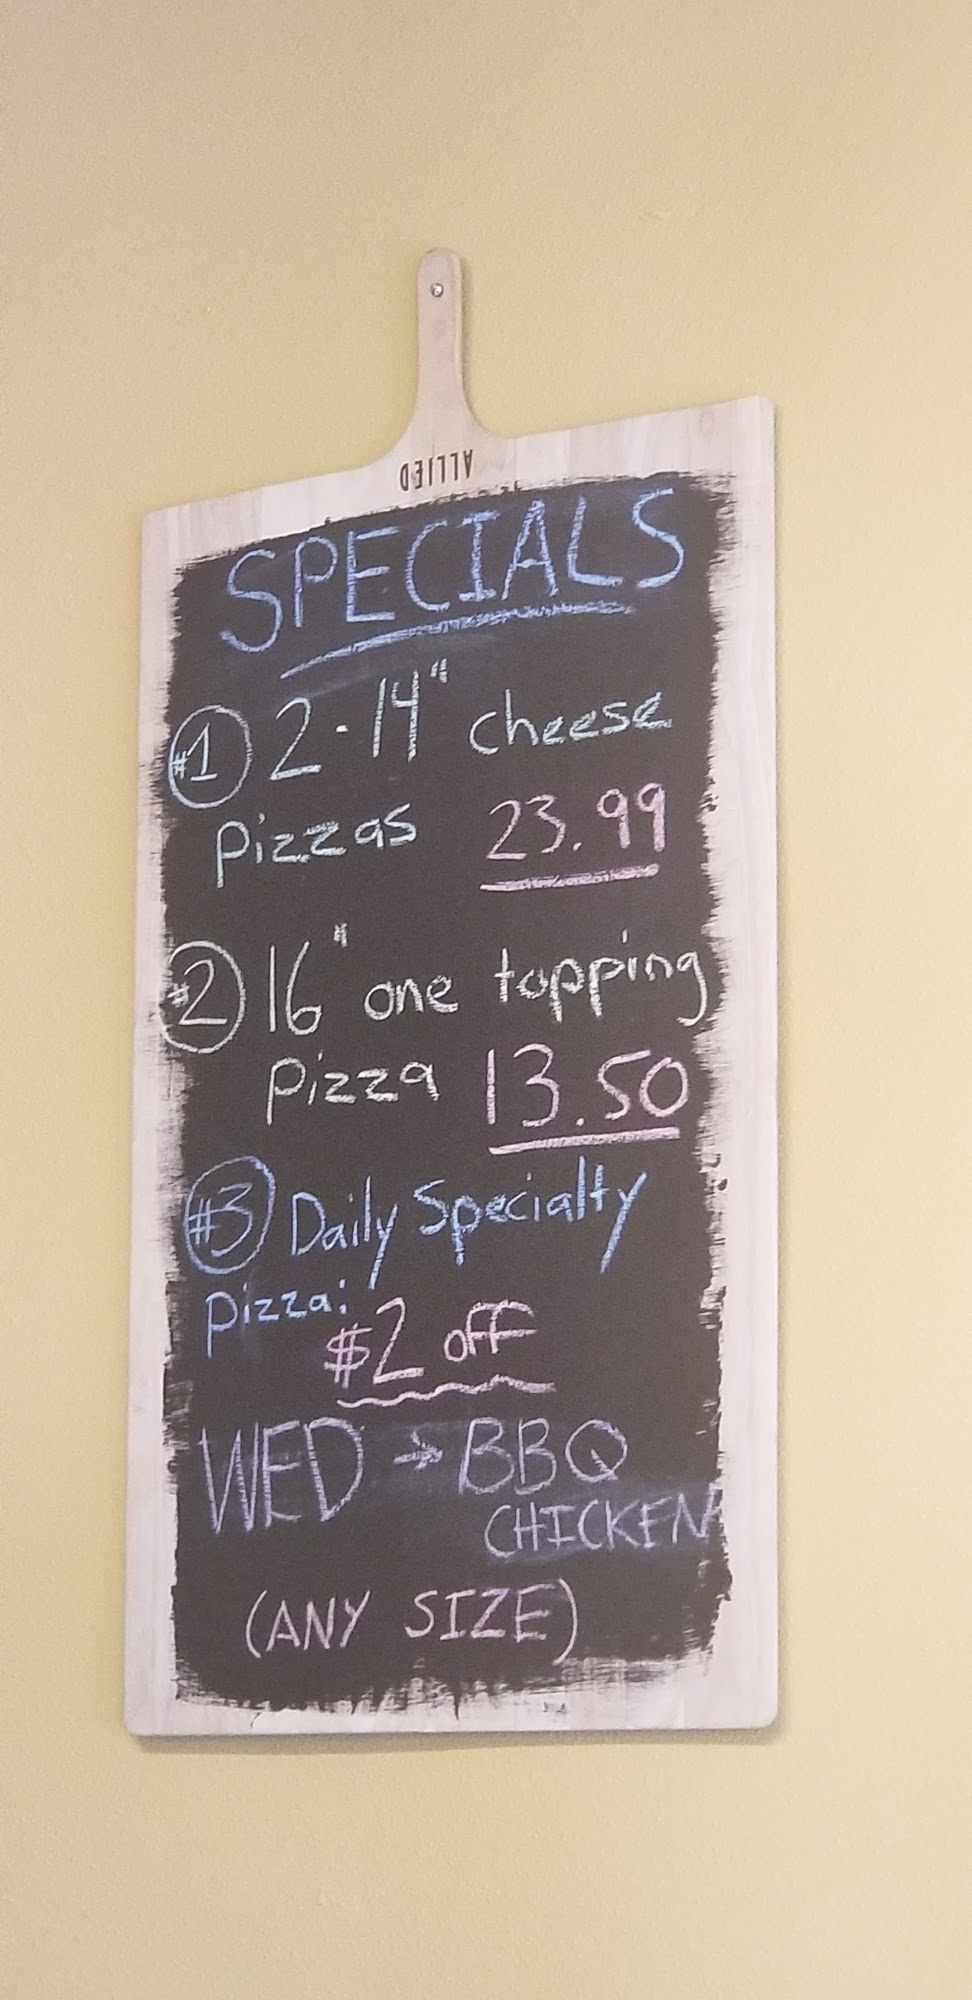 ALLIED
SPECIALS
#1 2-14" cheese
pizzas 23.99
#2 16" one topping
pizza 13.50
#3 Daily Specialty
pizza:
$2 off
WED → BBQ
CHICKEN
(ANY SIZE)